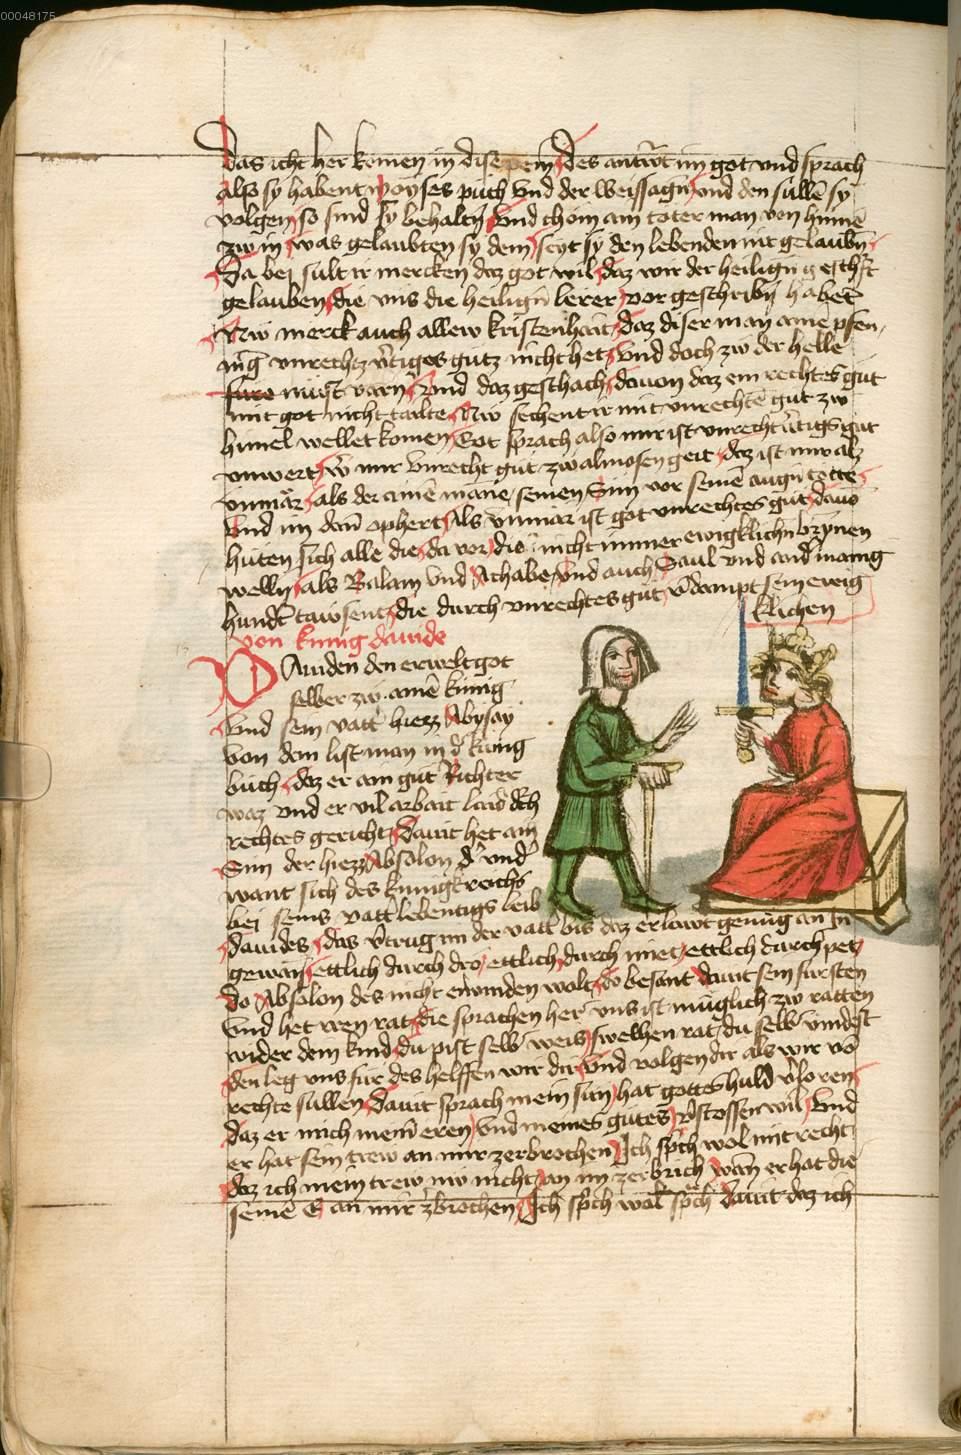 00048175
das icht her komen in dise pein Des antwrt im got vnd sprach
also sy habent moyses puch vnd der weissagn vnd den sullē sy
volgen so sind sy behaltn vnd chom ain toter man von hinnē
zw in was gelaubten sy dem seyt sy den lebenden nit gelaubn
Da bei sult ir mercken daz got wil daz wir der heilign geschrft
gelauben die vns die heilign lerer vor geschribn habent
Nw merck auch allew kristenhait daz diser man ainē pfen
nig vnrechtz vertiges gutz nicht het vnd doch zw der helle
fure must varn Vnd daz geschach dauon daz ein rechtes gut
mit got nicht tailte Nw sechent ir mit vnrechtē gut zw
himel wellet komen Got sprach also mir ist vnrecht vertigs gut
vnwert wer mir vnrecht gut zw almosen geit daz ist mir alz
vnmär als der ainē manē seinen Sun vor seinē augn tötte
Vnd im dan ophert Als vnmär ist got vnrechtes gut dauō
hüten sich alle die da vor die nicht immer ewigklichn brynen
welln als Balam vnd Achabe vnd auch Saul vnd ander manig
hundert tawsent die durch vnrechtes gut verdampt sein ewig
klichen
von kunig dauide
Dauiden den erwelt got
selber zw ainē kunig
vnd sein vatter hiezz Abysay
von dem list man in der kunig
buch daz er ain gut Richter
waz vnd er vil arbait laid durch
rechtes gericht Dauit het ain
Sun der hiezz Absolon der vnder
want sich des kunigkreichs
bei seins vatter lebentigs leib
dauides das vertrug im der vatter bis daz er lawt genug an In
gewan ettlich durch dro ettlich durch miet ettlich durch pet
do Absolon des nicht erwinden wolt do besant dauit sein fursten
vnd het iren rat die sprachen her vns ist müglich zw ratten
wider dein kind du pist selb weis swelhen rat du selb vindest
den leg vns für des helffen wir dir vnd volgen dir als wir vō
rechte sullen Dauit sprach mein sun hat gottes huld verloren
daz er mich meinr eren vnd meines gutes verstossen wil vnd
er hat sein trew an mir zerbrochen Ich sprich wol mit recht
daz ich mein trew nw nicht an im zerbrich wan er hat die
seinē E an mir zerbrochen Ich sprich wol sprach dauit daz ich